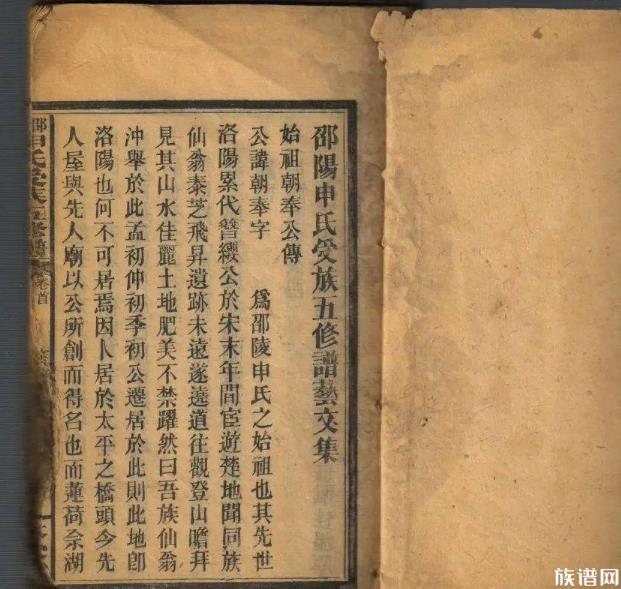 邵陽申氏受族五修譜藝文集
始祖朝奉公傳
公諱朝奉字 爲邵陵申氏之始祖也其先世
洛陽累代簪纓公於宋末年間宦遊楚地聞同族
仙翁泰芝飛昇遺跡未遠遂遶道往觀登山瞻拜
見其山水佳麗土地肥美不禁躍然曰吾族仙翁
沖舉於此孟初仲初季初公遷居於此則此地卽
洛陽也何不可居焉因卜居於太平之橋頭今先
人屋與先人廟以公所創而得名也而蓮荷佘湖
申氏受族五修譜
卷首
族谱网